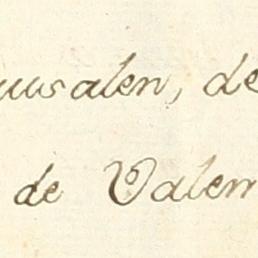 rusalen, de
de Valen